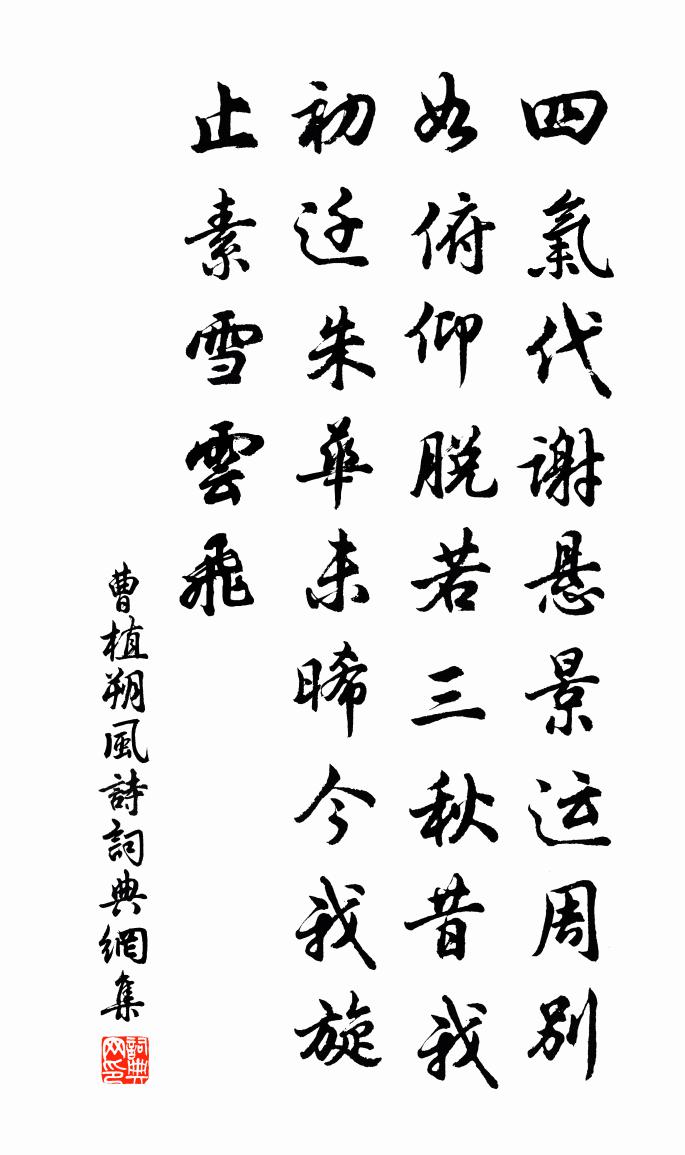 四氣代謝懸景运周別
如俯仰脫若三秋昔我
初迁朱華未晞今我旋
止素雪雲飛
曹植朔風詩詞典網集
詞典網印